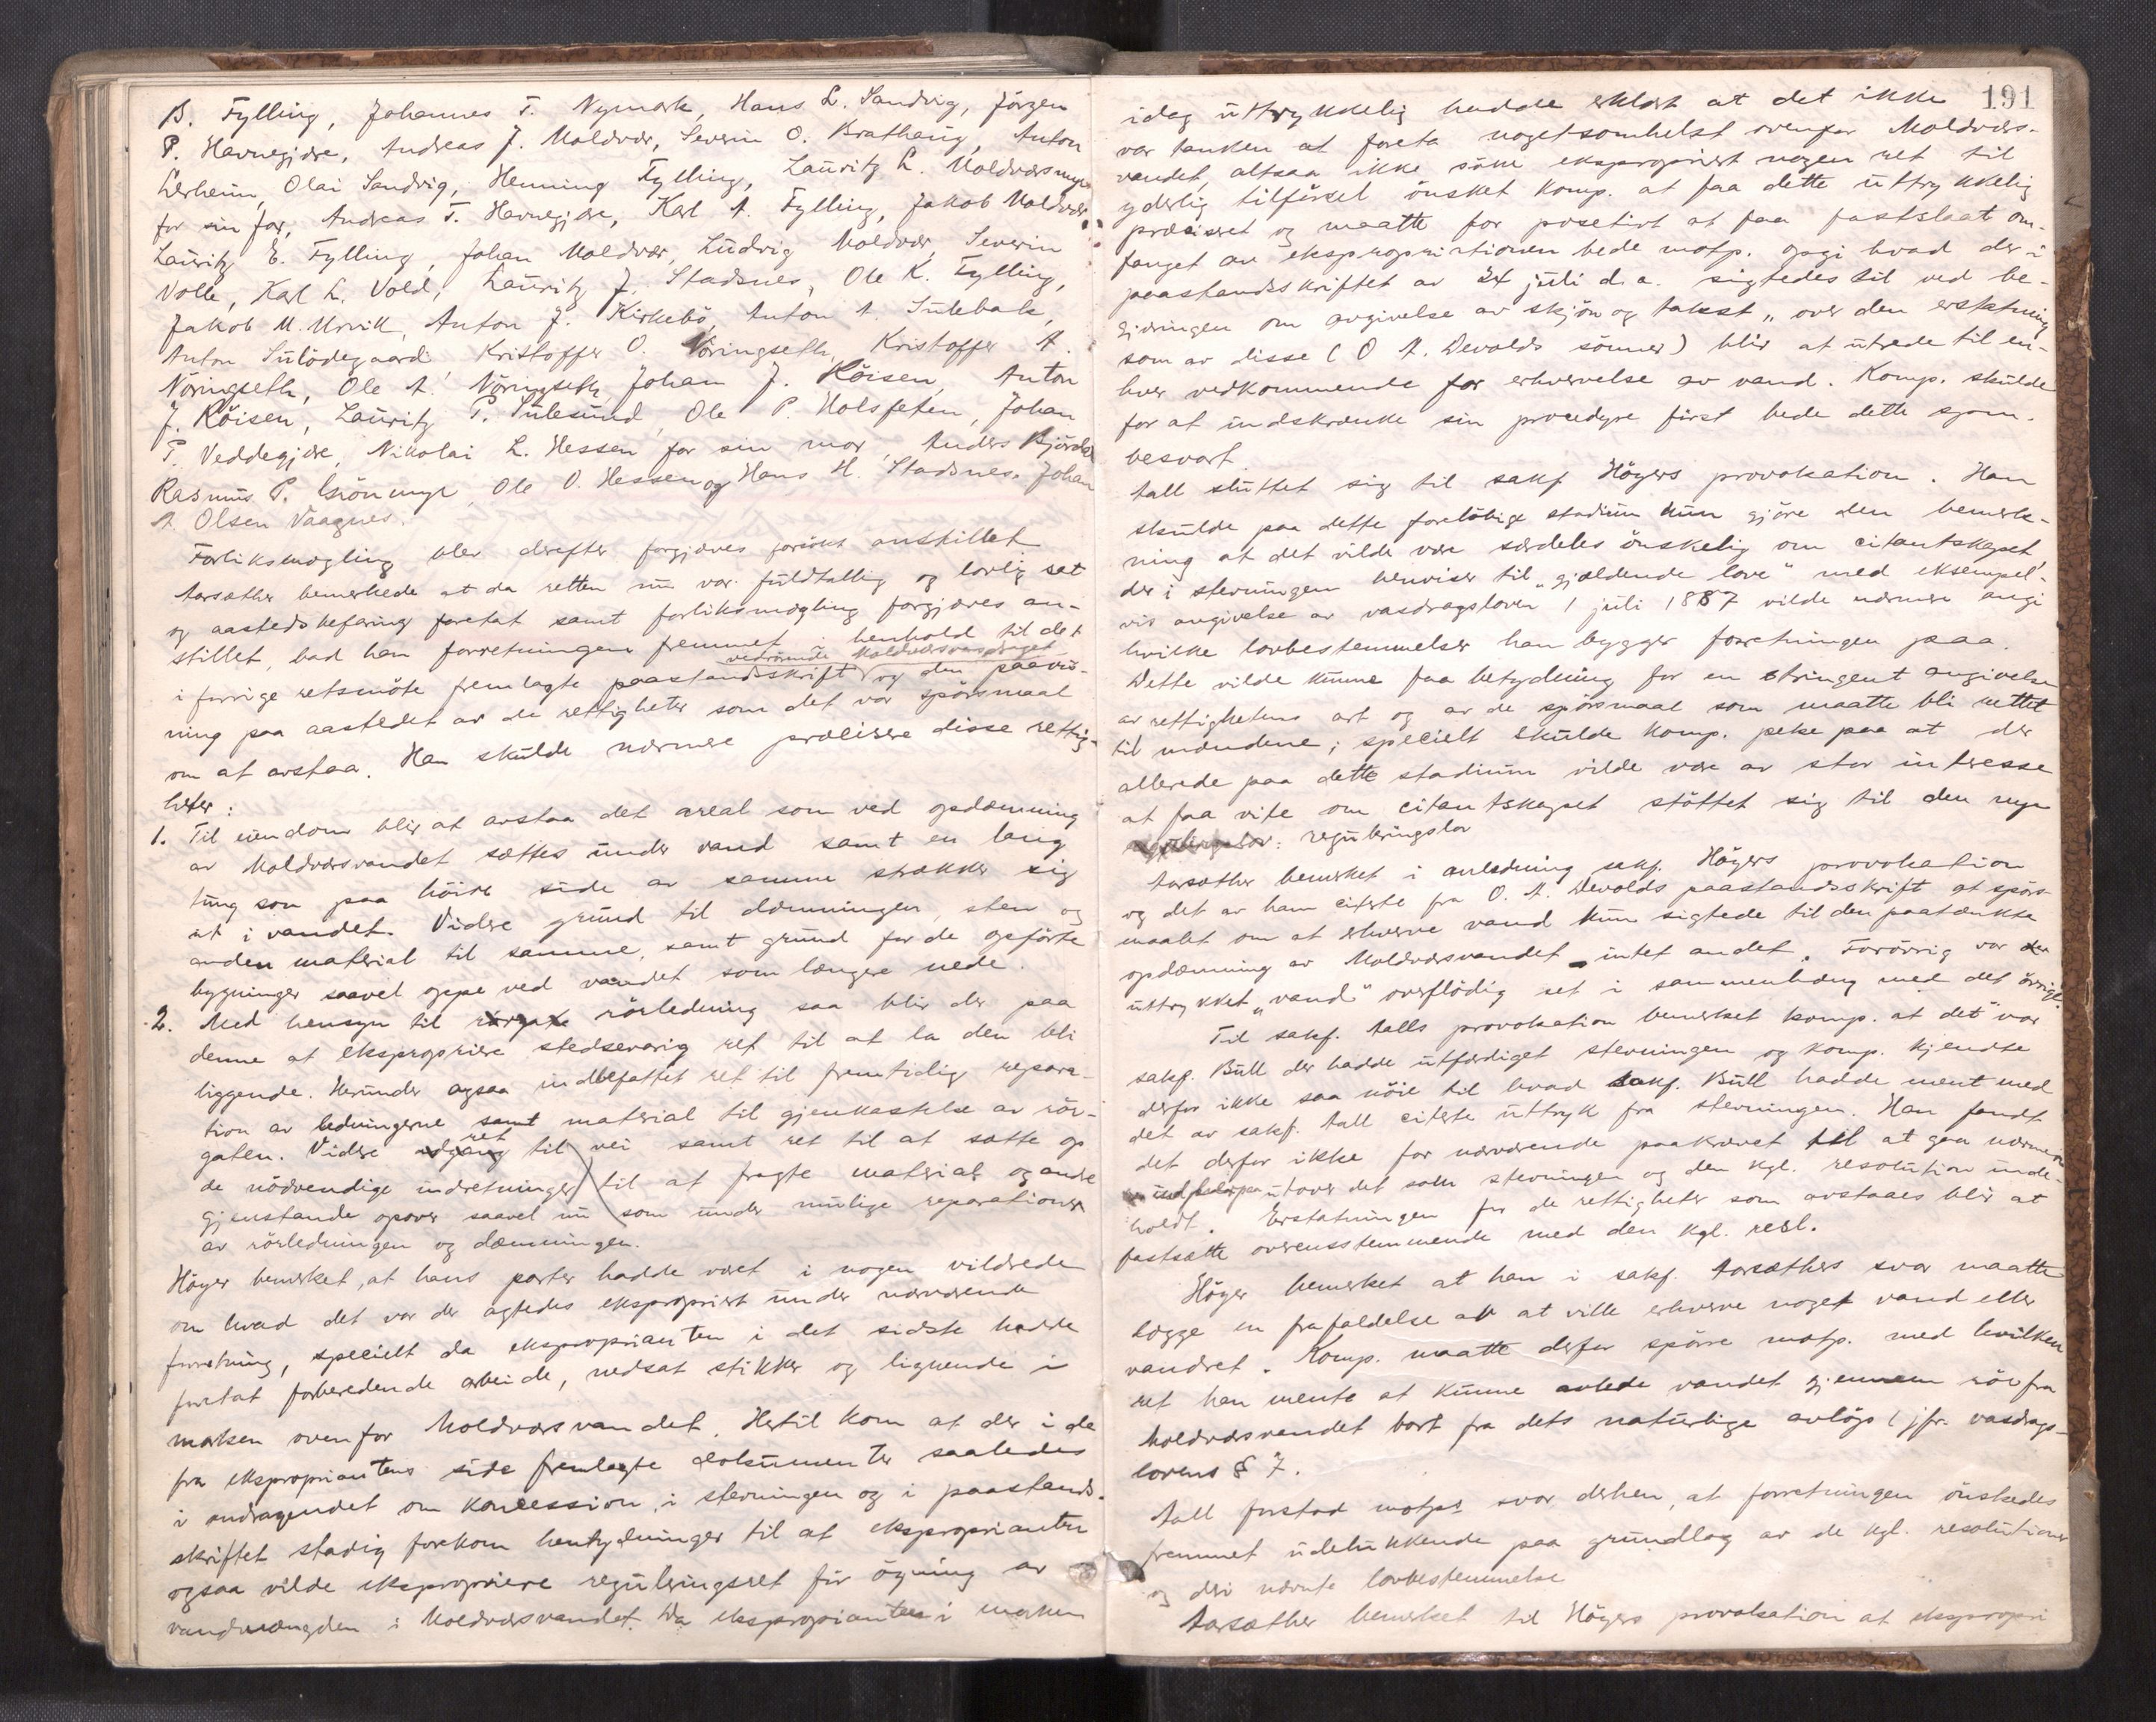 B. Fylling, Johannes T. Nymark, Hans L. Sandvig, Jörgen
P. Havnegjære, Andreas J. Moldvær, Severin O. Brathaug, Anton
Lerheim, Olai Sandvig, Henning Fylling, Lauritz L. Moldværsmyr
for sin far, Andreas T. Havnegjære, Karl A. Fylling, Jakob Moldvær
Lauritz E. Fylling, Johan Moldvær, Ludvig Moldvær, Severin
Volle, Karl L. Vold, Lauritz J. Stadsnes, Ole K. Fylling,
Jakob M. Urvik, Anton J. Kirkebö, Anton A. Sulebak,
Anton Sulödegaard, Kristoffer O. Nöringseth, Kristoffer A.
Nöringseth, Ole A. Nöringseth, Johan J. Röisen, Anton
J. Röisen, Lauritz P. Sulesund, Ole P. Holsfeten, Johan
P. Veddegjære, Nikolai L. Hessen for sin mor, Anders
Rasmus P. Grönmyr, Ole O. Hessen og Hans H. Stadsnes. Johan
A. Olsen Vaagnes.
Forliksmægling blev derefter forgjæves forsökt anstillet
Aarsæther bemerkede at da retten nu var fuldtallig og lovlig sat
og aastedsbefaring foretat samt forliksmægling forgjæves an-
stillet, bad han forretningen fremmet i henhold til det
i forrige retsmöte fremlagte paastandsskrift vedrörende Moldværsvasdraget og den paavis-
ning paa aastedet av de rettigheter som det var spörsmaal
om at avstaa. Han skulde nærmere præcisere disse rettig-
heter:
1. Til eiendom blir at avstaa det areal som ved opdæmning
av Moldværsvandet sættes under vand samt en lang
tung som paa höire side av samme strækker sig
ut i vandet. Videre grund til dæmningen, sten og
anden material til samme, samt grund for de opförte
bygninger saavel oppe ved vandet som længere nede.
2. Med hensyn til rörledning saa blir der paa
denne at ekspropriere stedsevarig ret til at la den bli
liggende. Herunder ogsaa indbefattet ret til fremtidig repara-
tion av ledningerne samt material til gjenkastelse av rör-
gaten. Videre ret til vei samt ret til at sætte op
de nödvendige indretninger til at fragte material og andre
gjenstande opover saavel nu som under mulige reparationer
av rörledningen og dæmningen.
Höyer bemerket, at hans parter hadde været i nogen vildrede
om hvad det var der agtedes ekspropriert under nærværende
forretning, specielt da eksproprianten i det sidste hadde
foretat forberedende arbeide, nedsat stikker og lignende i
marken ovenfor Moldværsvandet. Hertil kom at der i de
fra eksproprianters side fremlagte dokumenter saaledes
i andragendet om koncession, i stevningen og i paastands-
skriftet stadig forekom hentydninger til at eksproprianten
ogsaa vilde ekspropriere reguleringsret for ögning av
vandmængden i Moldværsvandet. Da eksproprianten i marken
191
idag uttrykkelig hadde erklært at det ikke
var tanken at foreta nogetsomhelst ovenfor Moldværs-
vandet, altsaa ikke söke ekspropriert nogen ret til
yderlig tilförsel önsket komp. at faa dette uttrykkelig
præciseret og maatte for posetivt at faa fastslaat om-
fanget av ekspropriationen bede motp. opgi hvad der i
paastandsskriftet av 24 juli d.a. sigtedes til ved be-
gjæringen om avgivelse av skjön og takst "over den erstatning
som av disse (O A. Devolds sönner) blir at utrede til en-
hver vedkommende for erhvervelse av vand. Komp. skulde
for at indskrænke sin procedyre först bede dette spm.
besvart.
Aall sluttet sig til sakf Höyers provokation. Han
skulde paa dette forelöbige stadium kun gjöre den bemerk-
ning at det vilde være særdeles önskelig om citantskapet,
der i stevningen henviser til "gjældende love" med eksempel-
vis angivelse av vasdragsloven 1 juli 1887 vilde nærmere angi
hvilke lovbestemmelser han bygger forretningen paa.
Dette vilde kunne faa betydning for en stringent angivelse
av rettighetens art og av de spörsmaal som maatte bli rettet
til mændene; specielt skulde komp. peke paa at det
allerede paa dette stadium vilde være av stor interesse
at faa vite om citantskapet stöttet sig til den nye
reguleringslov
Aarsæther bemerket i anledning sakf. Höyers provokation
og det av ham citerte fra O. A. Devolds paastandsskrift at spörs-
maalet om at erhverve vand kun sigtede til den paatænkte
opdæmning av Moldværsvandet intet andet. Forövrig var
uttrykket "vand" overflödig set i sammenhæng med det övrige.
Til sakf. Aalls provokation bemerket komp. at det var
sakf. Bull der hadde utfærdiget stevningen og komp. kjendte
derfor ikke saa nöie til hvad sakf. Bull hadde ment med
det av sakf. Aall citerte uttryk fra stevningen. Han fandt
det derfor ikke for nærværende paakrævet at gaa nærmere
utover det som stevningen og den kgl. resolution inde-
holdt. Erstatningen for de rettigheter som avstaaes blir at
fastsætte overensstemmende med den kgl. resl.
Höyer bemerket at han i sakf. Aarsæthers svar maatte
lægge en frafaldelse av at ville erhverve noget vand eller
vandret. Komp. maatte derfor spörre motp. med hvilken
ret han mente at kunne avlede vandet gjennem rör fra
Moldværsvandet bort fra dets naturlige avlöp (jfr. vasdrags-
lovens § 7.
Aall forstod motps svar derhen, at forretningen önskedes
fremmet udelukkende paa grundlag av de kgl. resolutioner
og deri nævnte lovbestemmelse
Aarsæther bemerket til Höyers provokation at ekspropri